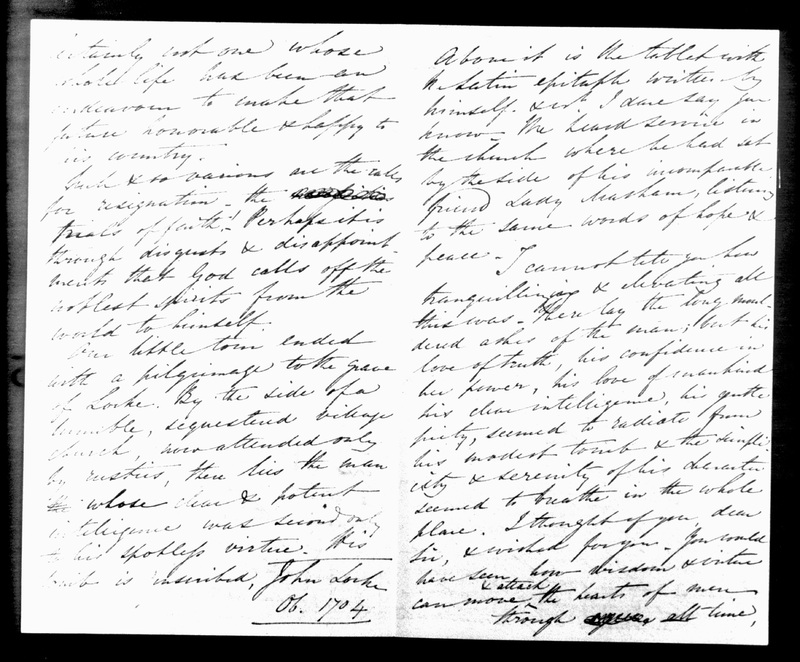 certainly not one whose
whole life has been an
endeavour to make that
future honorable & happy to
his country.
Such & so various are the calls
for resignation - the
trials of faith! Perhaps it is
through disgusts & disappoint-
ments that God calls off the
noblest spirits from the
world to himself.
Our little tour ended
with a pilgrimage to the grave
of Locke. By the side of a
humble, sequestered village
church, now attended only
by rustics, there lies the man
whose clear & potent
intelligence was second only
to his spotless virtue. His
tomb is inscribed, John Locke
Ob. 1704
Above it is the tablet with
Latin epitaph written by
himself. & wh. I dare say you
know. We heard service in
the church where he had sat
by the side of his incomparable
friend Lady Masham, listening
to the same words of hope &
peace -
I cannot tell you how
tranquillizing & elevating all
this was. There lay the long moul-
dered ashes of the man; but his
love of truth, his confidence in
her power, his love of mankind
his clear intelligence, his gentle
piety, seemed to radiate from
his modest tomb & the simpli-
city & serenity of his character
seemed to breathe in the whole
place. I thought of you, dear
Sir, & wished for you. You would
have seen how wisdom & virtue
can move & attach the hearts of men
through all time,